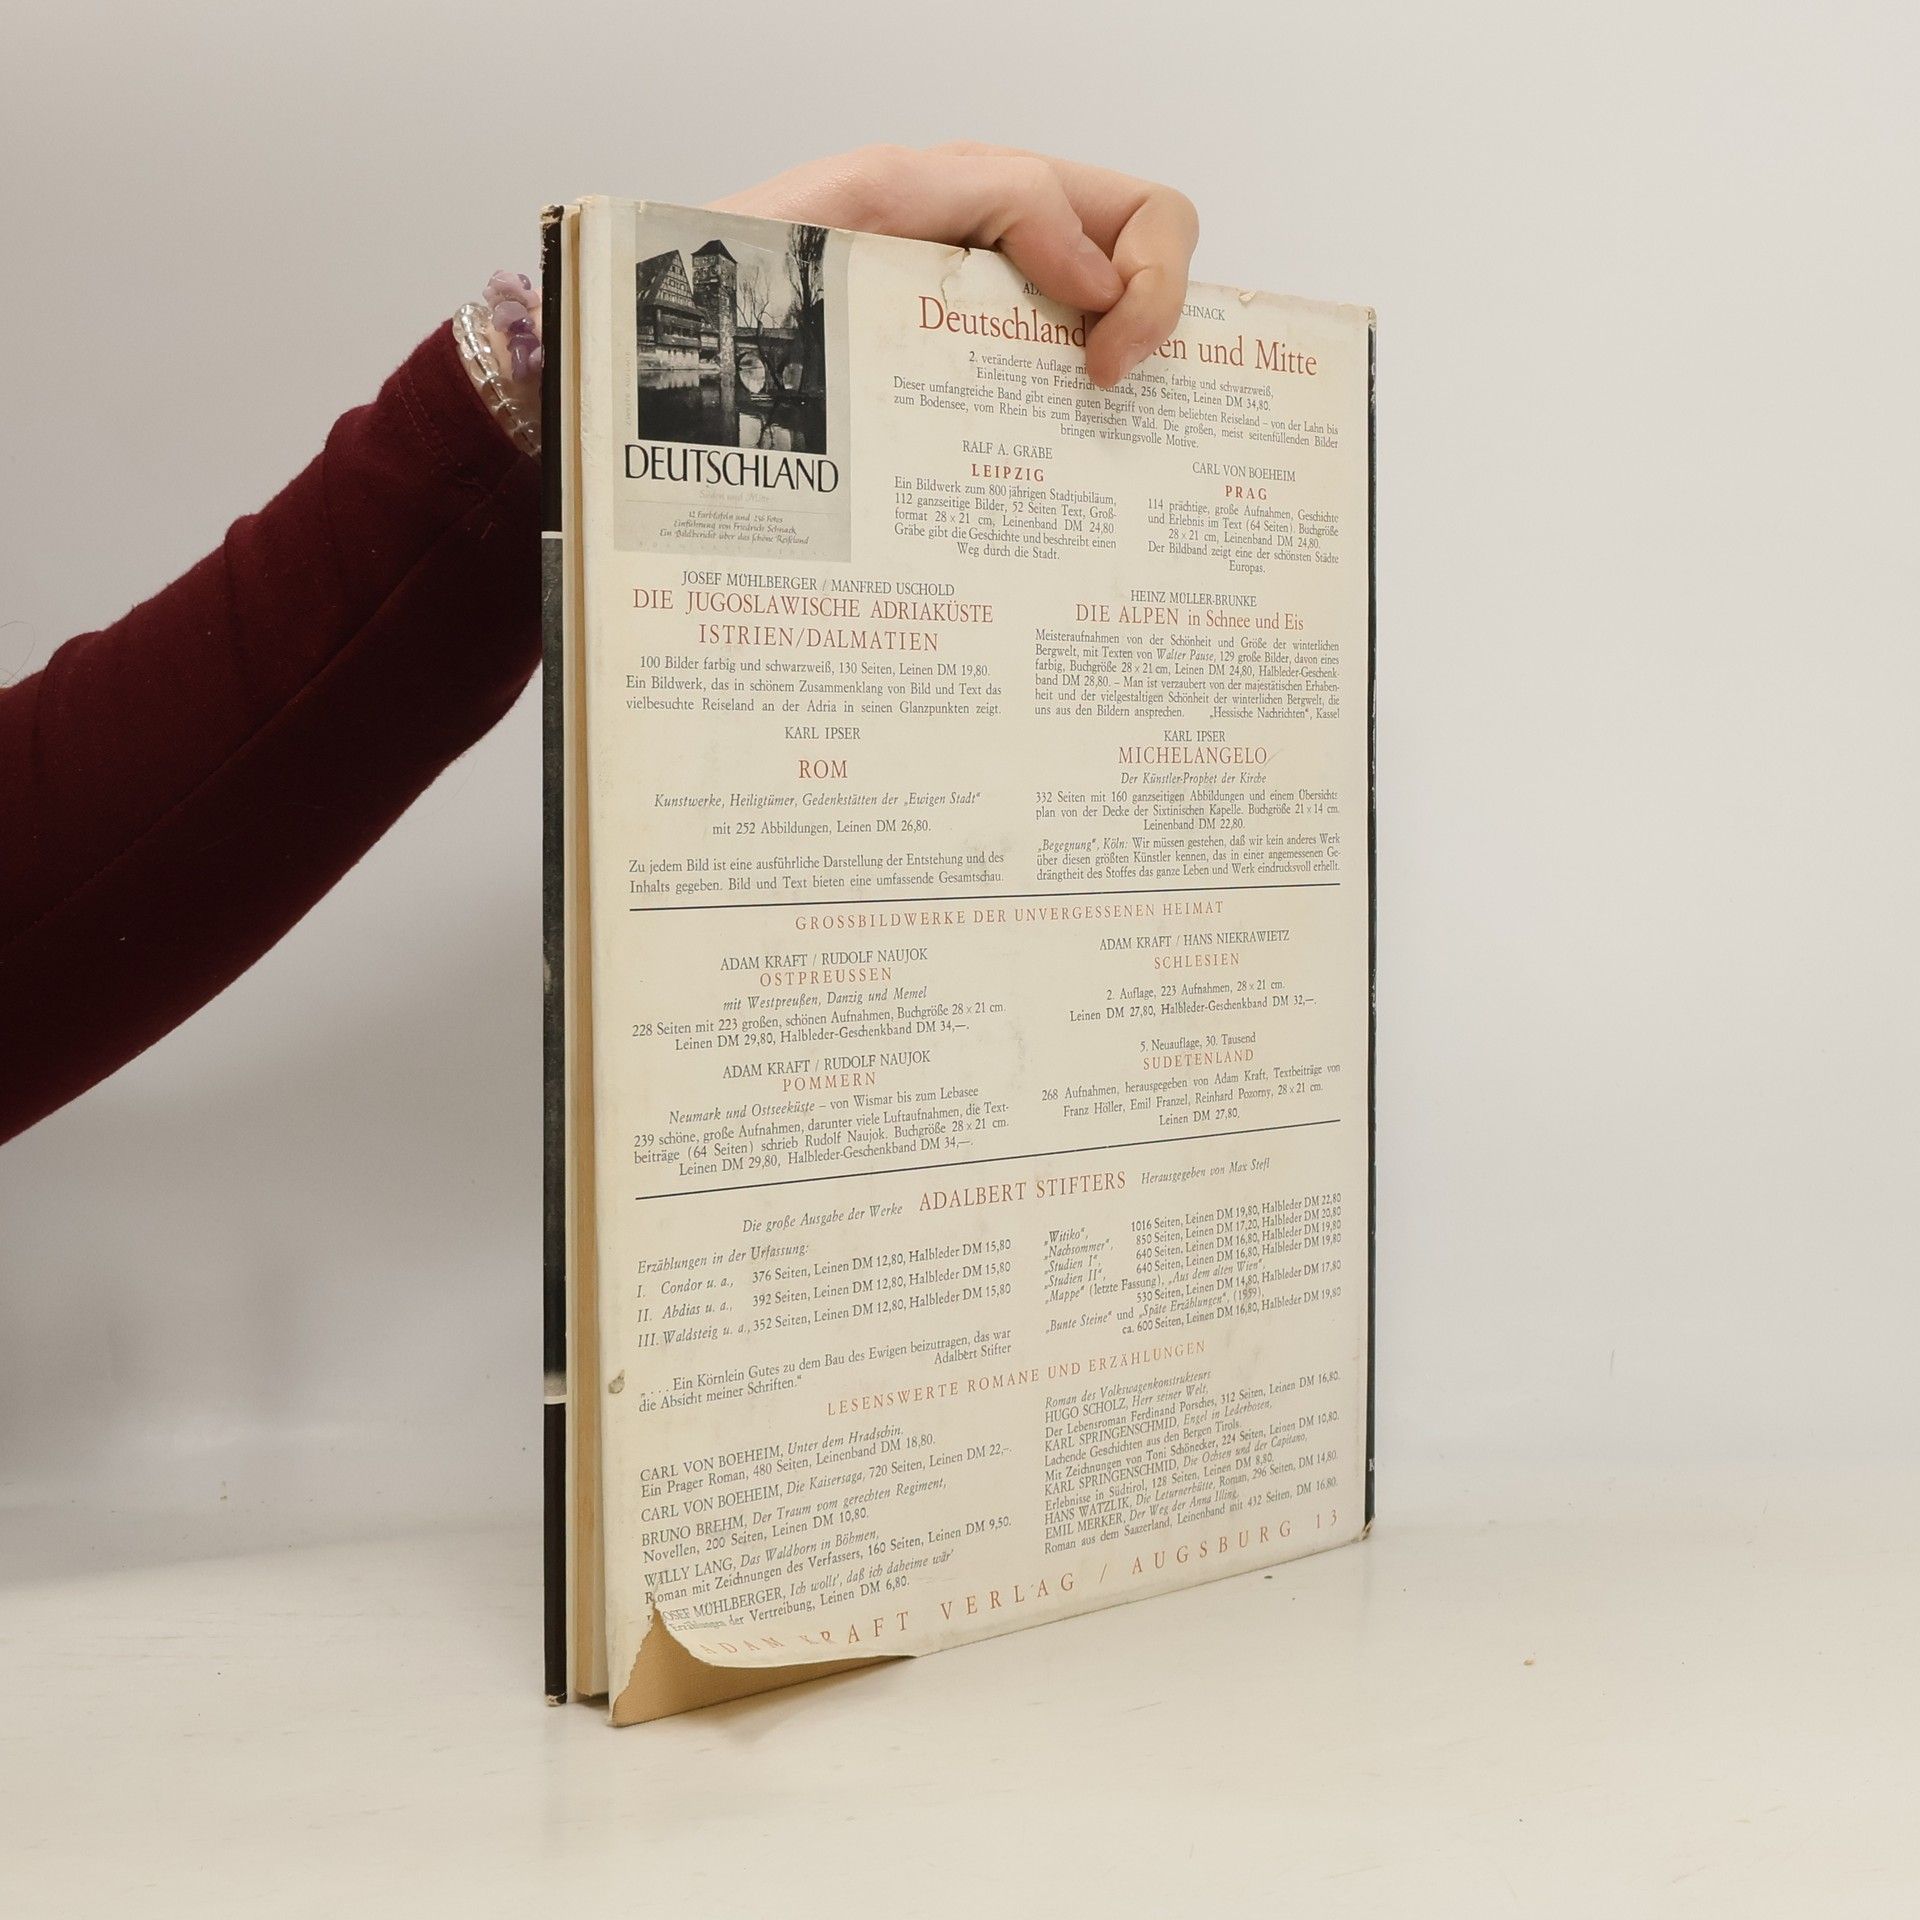 DEUTSCHLAND
Süden und Mitte
12 Farbtafeln und 256 Fotos
Einführung von Friedrich Schnack
Ein Bildbericht über das schöne Reiseland
CHNACK
Deutschland en und Mitte
2. veränderte Auflage nahmen, farbig und schwarzweiß,
Einleitung von Friedrich 256 Seiten, Leinen DM 34,80.
Dieser umfangreiche Band gibt einen guten Begriff von dem beliebten Reiseland – von der Lahn bis
zum Bodensee, vom Rhein bis zum Bayerischen Wald. Die großen, meist seitenfüllenden Bilder
bringen wirkungsvolle Motive.
RALF A. GRÄBE
LEIPZIG
Ein Bildwerk zum 800 jährigen Stadtjubiläum,
112 ganzseitige Bilder, 52 Seiten Text, Groß-
format 28 × 21 cm, Leinenband DM 24,80
Gräbe gibt die Geschichte und beschreibt einen
Weg durch die Stadt.
CARL VON BOEHEIM
PRAG
114 prächtige, große Aufnahmen, Geschichte
und Erlebnis im Text (64 Seiten). Buchgröße
28 × 21 cm, Leinenband DM 24,80.
Der Bildband zeigt eine der schönsten Städte
Europas.
JOSEF MÜHLBERGER / MANFRED USCHOLD
DIE JUGOSLAWISCHE ADRIAKÜSTE
ISTRIEN/DALMATIEN
100 Bilder farbig und schwarzweiß, 130 Seiten, Leinen DM 19,80.
Ein Bildwerk, das in schönem Zusammenklang von Bild und Text das
vielbesuchte Reiseland an der Adria in seinen Glanzpunkten zeigt.
HEINZ MÜLLER-BRUNKE
DIE ALPEN in Schnee und Eis
Meisteraufnahmen von der Schönheit und Größe der winterlichen
Bergwelt, mit Texten von Walter Pause, 129 große Bilder, davon eines
farbig, Buchgröße 28 × 21 cm, Leinen DM 24,80, Halbleder-Geschenk-
band DM 28,80. – Man ist verzaubert von der majestätischen Erhaben-
heit und der vielgestaltigen Schönheit der winterlichen Bergwelt, die
uns aus den Bildern ansprechen. „Hessische Nachrichten“, Kassel
KARL IPSER
ROM
Kunstwerke, Heiligtümer, Gedenkstätten der „Ewigen Stadt“
mit 252 Abbildungen, Leinen DM 26,80.
Zu jedem Bild ist eine ausführliche Darstellung der Entstehung und des
Inhalts gegeben. Bild und Text bieten eine umfassende Gesamtschau.
KARL IPSER
MICHELANGELO
Der Künstler-Prophet der Kirche
332 Seiten mit 160 ganzseitigen Abbildungen und einem Übersichts-
plan von der Decke der Sixtinischen Kapelle. Buchgröße 21 × 14 cm.
Leinenband DM 22,80.
„Begegnung“, Köln: Wir müssen gestehen, daß wir kein anderes Werk
über diesen größten Künstler kennen, das in einer angemessenen Ge-
drängtheit des Stoffes das ganze Leben und Werk eindrucksvoll erhellt.
GROSSBILDWERKE DER UNVERGESSENEN HEIMAT
ADAM KRAFT / RUDOLF NAUJOK
OSTPREUSSEN
mit Westpreußen, Danzig und Memel
228 Seiten mit 223 großen, schönen Aufnahmen, Buchgröße 28 × 21 cm.
Leinen DM 29,80, Halbleder-Geschenkband DM 34,—.
ADAM KRAFT / RUDOLF NAUJOK
POMMERN
Neumark und Ostseeküste – von Wismar bis zum Lebasee
239 schöne, große Aufnahmen, darunter viele Luftaufnahmen, die Text-
beiträge (64 Seiten) schrieb Rudolf Naujok. Buchgröße 28 × 21 cm.
Leinen DM 29,80, Halbleder-Geschenkband DM 34,—.
ADAM KRAFT / HANS NIEKRAWIETZ
SCHLESIEN
2. Auflage, 223 Aufnahmen, 28 × 21 cm.
Leinen DM 27,80, Halbleder-Geschenkband DM 32,—.
5. Neuauflage, 30. Tausend
SUDETENLAND
268 Aufnahmen, herausgegeben von Adam Kraft, Textbeiträge von
Franz Höller, Emil Franzel, Reinhard Pozorny, 28 × 21 cm.
Leinen DM 27,80.
Die große Ausgabe der Werke ADALBERT STIFTERS Herausgegeben von Max Stefl
Erzählungen in der Urfassung:
I. Condor u. a., 376 Seiten, Leinen DM 12,80, Halbleder DM 15,80
II. Abdias u. a., 392 Seiten, Leinen DM 12,80, Halbleder DM 15,80
III. Waldsteig u. a., 352 Seiten, Leinen DM 12,80, Halbleder DM 15,80
„. . . Ein Körnlein Gutes zu dem Bau des Ewigen beizutragen, das war
die Absicht meiner Schriften.“ Adalbert Stifter
„Witiko“, 1016 Seiten, Leinen DM 19,80, Halbleder DM 22,80
„Nachsommer“, 850 Seiten, Leinen DM 17,20, Halbleder DM 20,80
„Studien I“, 640 Seiten, Leinen DM 16,80, Halbleder DM 19,80
„Studien II“, 640 Seiten, Leinen DM 16,80, Halbleder DM 19,80
„Mappe“ (letzte Fassung), „Aus dem alten Wien“,
530 Seiten, Leinen DM 14,80, Halbleder DM 17,80
„Bunte Steine“ und „Späte Erzählungen“, (1959),
ca. 600 Seiten, Leinen DM 16,80, Halbleder DM 19,80
LESENSWERTE ROMANE UND ERZÄHLUNGEN
CARL VON BOEHEIM, Unter dem Hradschin.
Ein Prager Roman, 480 Seiten, Leinenband DM 18,80.
CARL VON BOEHEIM, Die Kaisersaga, 720 Seiten, Leinen DM 22,–.
BRUNO BREHM, Der Traum vom gerechten Regiment,
Novellen, 200 Seiten, Leinen DM 10,80.
WILLY LANG, Das Waldhorn in Böhmen,
Roman mit Zeichnungen des Verfassers, 160 Seiten, Leinen DM 9,50.
JOSEF MÜHLBERGER, Ich wollt', daß ich daheime wär'
Erzählungen der Vertreibung, Leinen DM 6,80.
Roman des Volkswagenkonstrukteurs
HUGO SCHOLZ, Herr seiner Welt,
Der Lebensroman Ferdinand Porsches, 312 Seiten, Leinen DM 16,80.
KARL SPRINGENSCHMID, Engel in Lederhosen,
Lachende Geschichten aus den Bergen Tirols.
Mit Zeichnungen von Toni Schönecker, 224 Seiten, Leinen DM 10,80.
KARL SPRINGENSCHMID, Die Ochsen und der Capitano,
Erlebnisse in Südtirol, 128 Seiten, Leinen DM 8,80.
HANS WATZLIK, Die Leturnerhütte, Roman, 296 Seiten, DM 14,80.
EMIL MERKER, Der Weg der Anna Illing,
Roman aus dem Saazerland, Leinenband mit 432 Seiten, DM 16,80.
ADAM KRAFT VERLAG / AUGSBURG 13